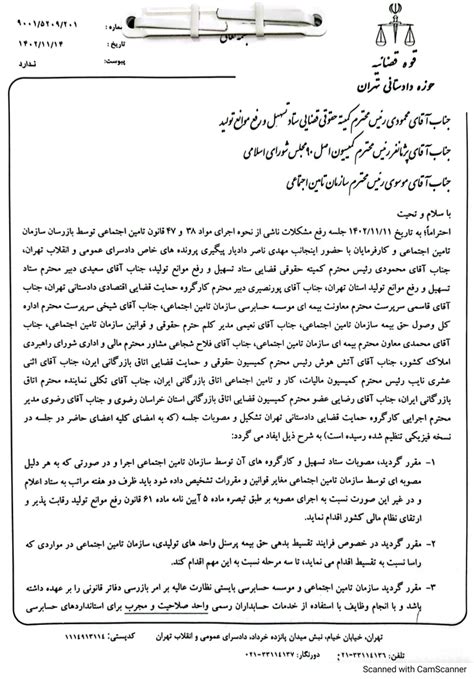 بسمه تعالی
شماره : ۹۰۰۱/۵۲۰۹/۲۰۱
تاریخ : ۱۴۰۲/۱۱/۱۴
پیوست: ندارد
قوه قضائیه
حوزه دادستانی تهران
جناب آقای محمودی رئیس محترم کمیته حقوقی قضایی ستاد تسهیل و رفع موانع تولید
جناب آقای پژمانفر رئیس محترم کمیسیون اصل ۹۰ مجلس شورای اسلامی
جناب آقای موسوی رئیس محترم سازمان تامین اجتماعی
با سلام و تحیت
احتراماً؛ به تاریخ ۱۴۰۲/۱۱/۱۱ جلسه رفع مشکلات ناشی از نحوه اجرای مواد ۳۸ و ۴۷ قانون تامین اجتماعی توسط بازرسان سازمان
تامین اجتماعی و کارفرمایان با حضور اینجانب مهدی ناصر دادیار پیگیری پرونده های خاص دادسرای عمومی و انقلاب تهران،
جناب آقای محمودی رئیس محترم کمیته حقوقی قضایی ستاد تسهیل و رفع موانع تولید، جناب آقای سعیدی دبیر محترم ستاد
تسهیل و رفع موانع تولید استان تهران، جناب آقای پورنصیری دبیر محترم کارگروه حمایت قضایی اقتصادی دادستانی تهران، جناب
آقای قاسمی سرپرست محترم معاونت بیمه ای موسسه حسابرسی سازمان تامین اجتماعی، جناب آقای شیخی سرپرست محترم اداره
کل وصول حق بیمه سازمان تامین اجتماعی، جناب آقای نعیمی مدیر کلم حترم حقوقی و قوانین سازمان تامین اجتماعی، جناب
آقای محمدی معاون محترم بیمه ای سازمان تامین اجتماعی، جناب آقای فلاح شجاعی مشاور محترم مالی و اداری شورای راهبردی
املاک کشور، جناب آقای آتش هوش رئیس محترم کمیسیون حقوقی و حمایت قضایی اتاق بازرگانی ایران، جناب آقای اثنی
عشری نایب رئیس محترم کمیسیون مالیات، کار و تامین اجتماعی اتاق بازرگانی ایران، جناب آقای تکلی نماینده محترم اتاق
بازرگانی ایران، جناب آقای رضایی عضو محترم کمیسیون قضایی اتاق بازرگانی استان خراسان رضوی و جناب آقای رضوی مدیر
محترم اجرایی کارگروه حمایت قضایی دادستانی تهران تشکیل و مصوبات جلسه (که به امضای کلیه اعضای حاضر در جلسه در
نسخه فیزیکی تنظیم شده رسیده است) به شرح ذیل ایفاد می گردد:
۱- مقرر گردید، مصوبات ستاد تسهیل و کارگروه های آن توسط سازمان تامین اجتماعی اجرا و در صورتی که به هر دلیل
مصوبه ای توسط سازمان تامین اجتماعی مغایر قوانین و مقررات تشخیص داده شود باید ظرف دو هفته مراتب به ستاد اعلام
و در غیر این صورت نسبت به اجرای مصوبه بر طبق تبصره ماده ۵ آیین نامه ماده ۶۱ قانون رفع موانع تولید رقابت پذیر و
ارتقای نظام مالی کشور اقدام نماید.
۲- مقرر گردید در خصوص فرایند تقسیط بدهی حق بیمه پرسنل واحد های تولیدی، سازمان تامین اجتماعی در مواردی که
راسا نسبت به تقسیط اقدام می نماید، تا سه مرحله نسبت به این مهم اقدام کند.
۳- مقرر گردید سازمان تامین اجتماعی و موسسه حسابرسی بایستی نظارت عالیه بر امر بازرسی دفاتر قانونی را بر عهده داشته
باشد و با انجام وظایف با استفاده از خدمات حسابداران رسمی واحد صلاحیت و مجرب برای استانداردهای حسابرسی
تهران، خیابان خیام، نبش میدان پانزده خرداد، دادسرای عمومی و انقلاب تهران کدپستی: ۱۱۱۴۹۱۳۱۱۴
تلفن: ۳۳۱۱۴۱۳۶-۰۲۱ دورنگار: ۳۳۱۱۴۱۳۷-۰۲۱
Scanned with CamScanner